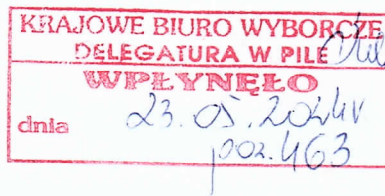 KRAJOWE BIURO WYBORCZE
DELEGATURA W PILE
WPŁYNĘŁO
dnia 23.05.2024r
poz. 463